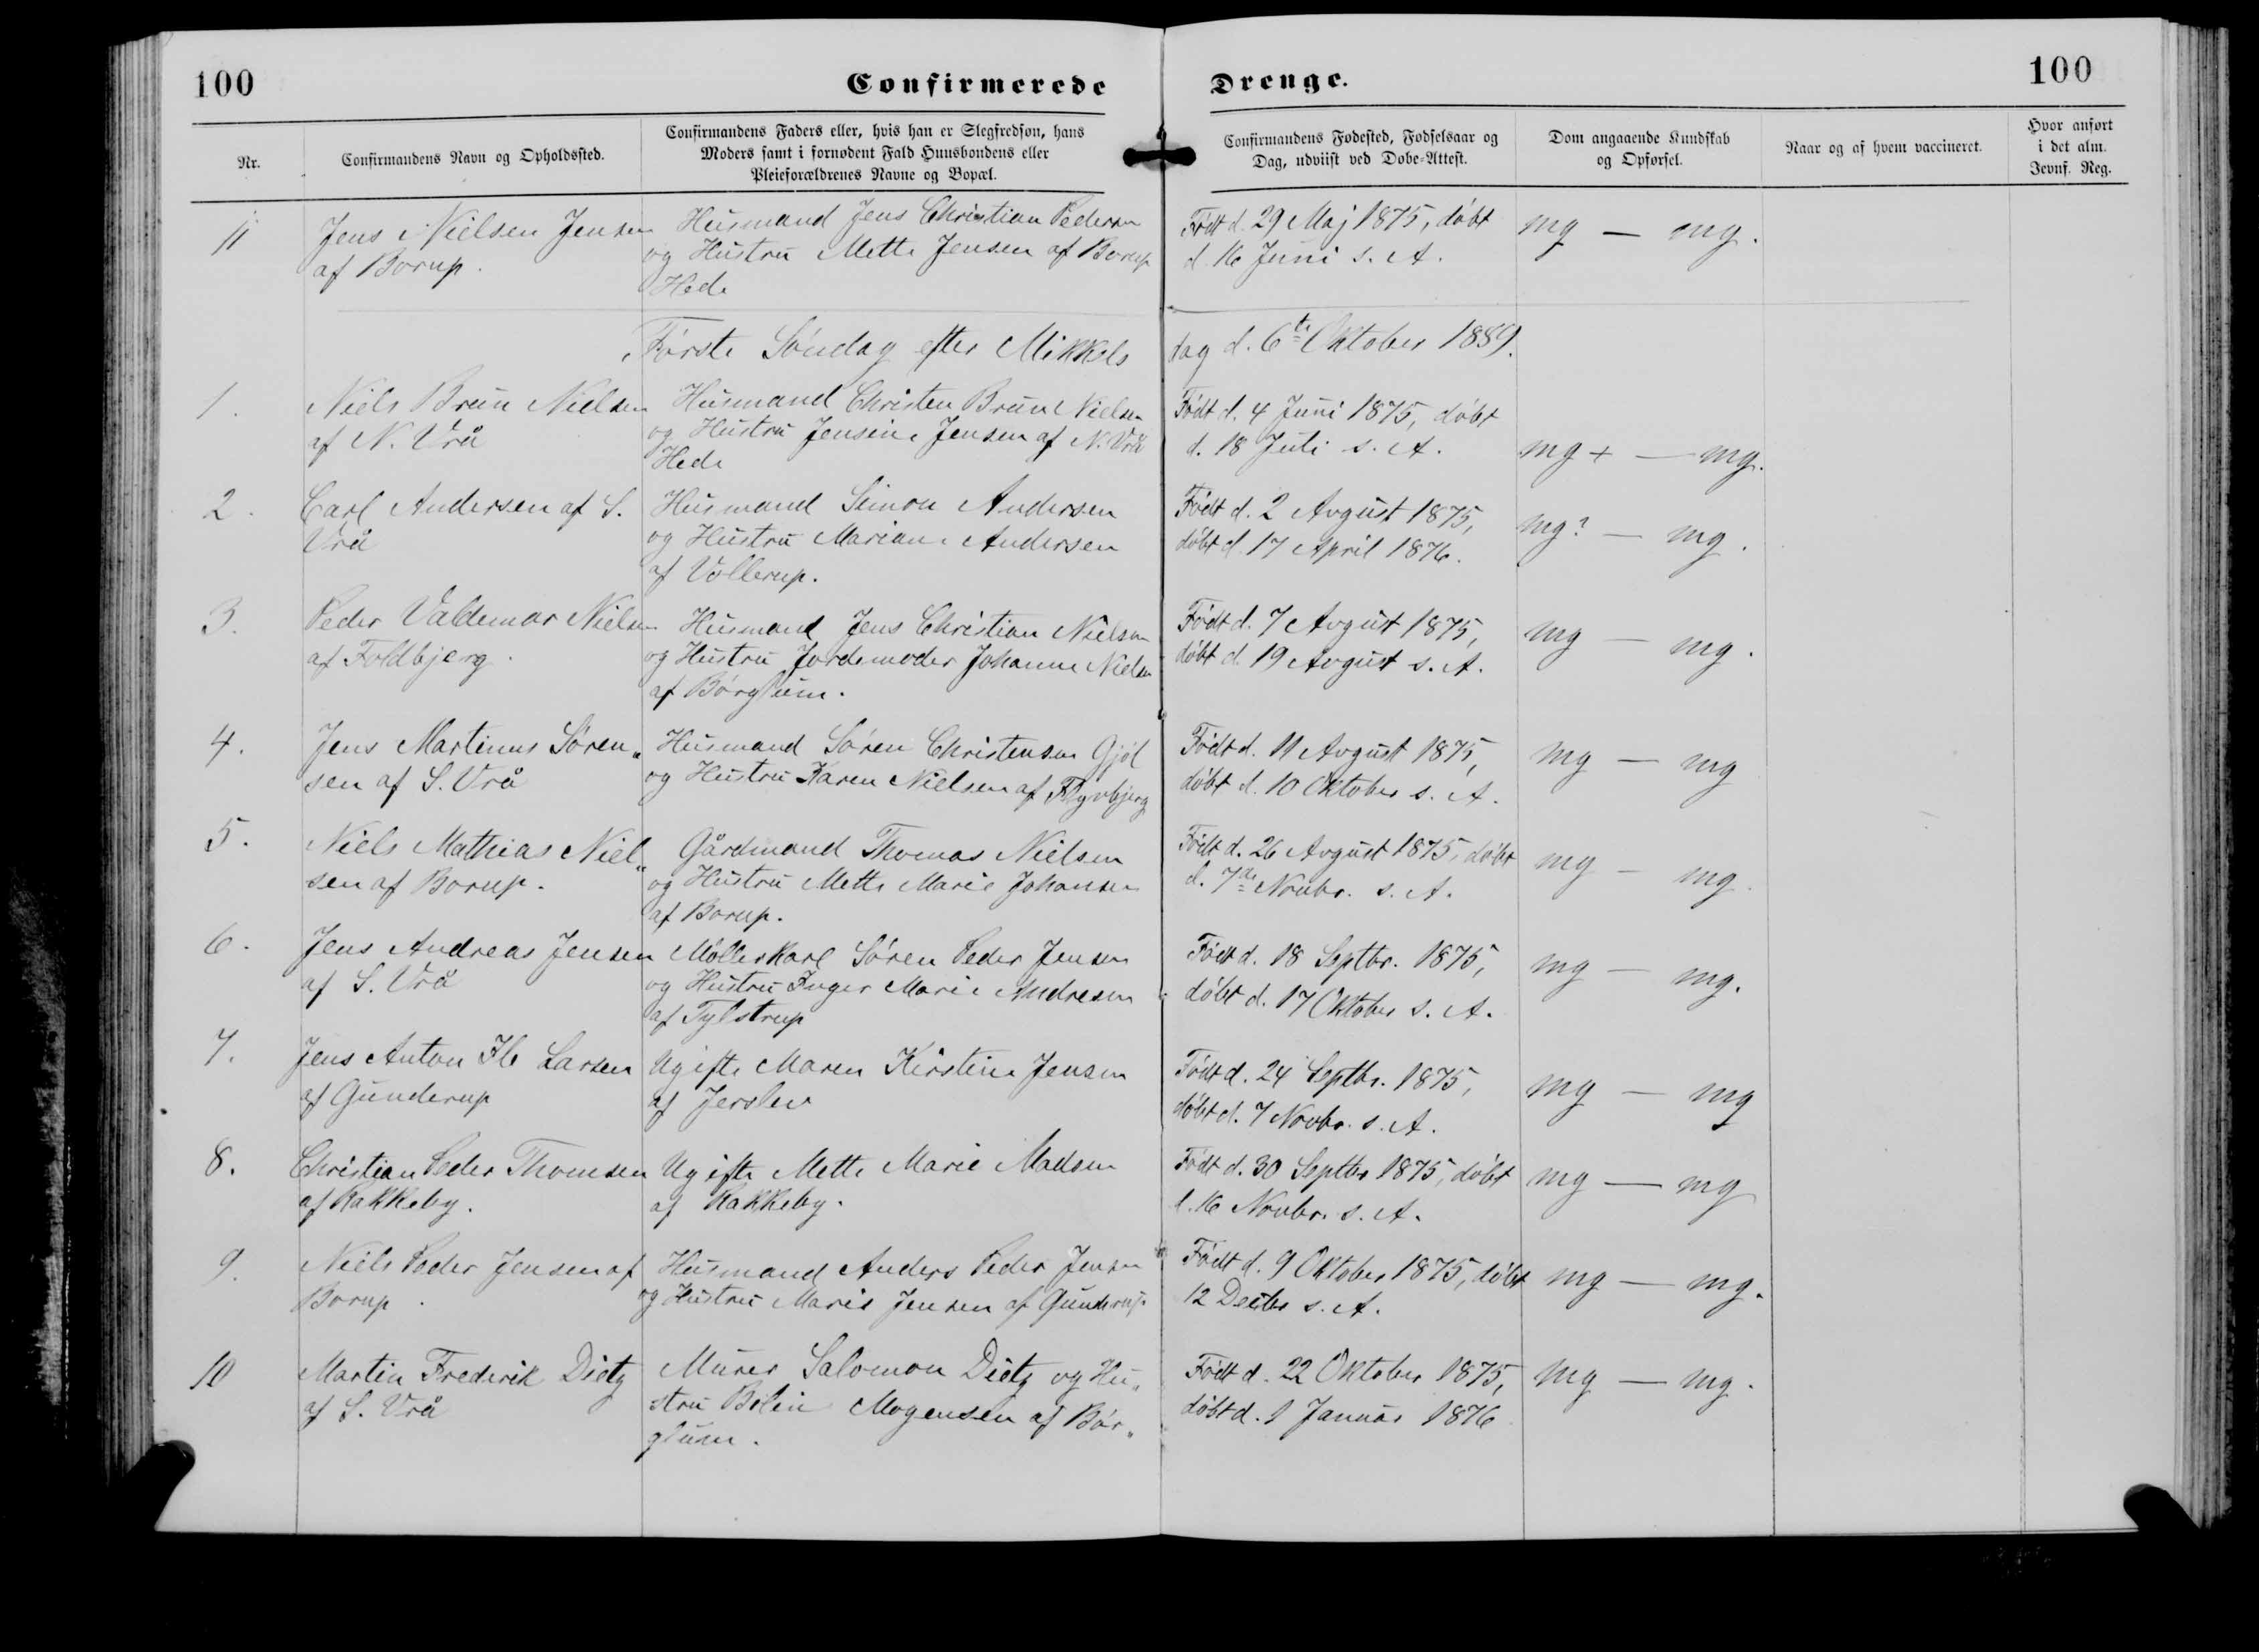 100
Confirmerede Drenge.
100
Nr.
Confirmandens Navn og Opholdssted.
Confirmandens Faders eller, hvis han er Slegfredsøn, hans
Moders samt i fornødent Fald Huusbondens eller
Pleieforældrenes Navne og Bopæl.
Confirmandens Fødested, Fødselsaar og
Dag, udviist ved Døbe-Attest.
Dom angaaende Kundskab
og Opførsel.
Naar og af hvem vaccineret.
Hvor anført
i det alm.
Jevnf. Reg.
11
Jens Nielsen Jensen
af Borup.
Husmand Jens Christian Pedersen
og Hustru Mette Jensen af Borup
Hede
Født d. 29 Maj 1875, døbt
d. 16 Juni s. A.
mg — mg.
Første Søndag efter Mikkelsdag d. 6te Oktober 1889.
1.
Niels Brun Nielsen
af N. Vrå
Husmand Christen Brun Nielsen
og Hustru Jensine Jensen af N. Vrå
Hede
Født d. 4 Juni 1875, døbt
d. 18 Juli s. A.
mg + — mg.
2.
Carl Andersen af S.
Vrå
Husmand Simon Andersen
og Hustru Mariane Andersen
af Vollerup.
Født d. 2 Avgust 1875,
døbt d. 17 April 1876.
mg? — mg.
3.
Peder Valdemar Nielsen
af Foldbjerg.
Husmand Jens Christian Nielsen
og Hustru Jordemoder Johanne Nielsen
af Børglum.
Født d. 7 Avgust 1875,
døbt d. 19 Avgust s. A.
mg — mg.
4.
Jens Martinus Søren„
sen af S. Vrå
Husmand Søren Christensen Gjøl
og Hustru Karen Nielsen af Flyvbjerg
Født d. 11 Avgust 1875,
døbt d. 10 Oktober s. A.
mg — mg
5.
Niels Mathias Niel„
sen af Borup.
Gårdmand Thomas Nielsen
og Hustru Mette Marie Johansen
af Borup.
Født d. 26 Avgust 1875, døbt
d. 7de Novbr. s. A.
mg — mg.
6.
Jens Andreas Jensen
af S. Vrå
Møllerkarl Søren Peder Jensen
og Hustru Inger Marie Andresen
af Tylstrup
Født d. 18 Septbr. 1875,
døbt d. 17 Oktober s. A.
mg — mg.
7.
Jens Anton Ib Larsen
af Gunderup
Ugifte Maren Kirstine Jensen
af Jerslev
Født d. 24 Septbr. 1875,
døbt d. 7 Novbr. s. A.
mg — mg
8.
Christian Peder Thomsen
af Rakkeby.
Ugifte Mette Marie Madsen
af Rakkeby.
Født d. 30 Septbr 1875, døbt
d. 16 Novbr. s. A.
mg — mg
9.
Niels Peder Jensen af
Borup.
Husmand Anders Peder Jensen
og Hustru Marie Jensen af Gunderup
Født d. 9 Oktober 1875, døbt
12 Decbr s. A.
mg — mg.
10
Martin Frederik Dietz
af S. Vrå
Murer Salomon Dietz og Hu„
stru Mogensen af Bør„
glum.
Født d. 22 Oktober 1875,
døbt d. 1 Januar 1876
mg — mg.